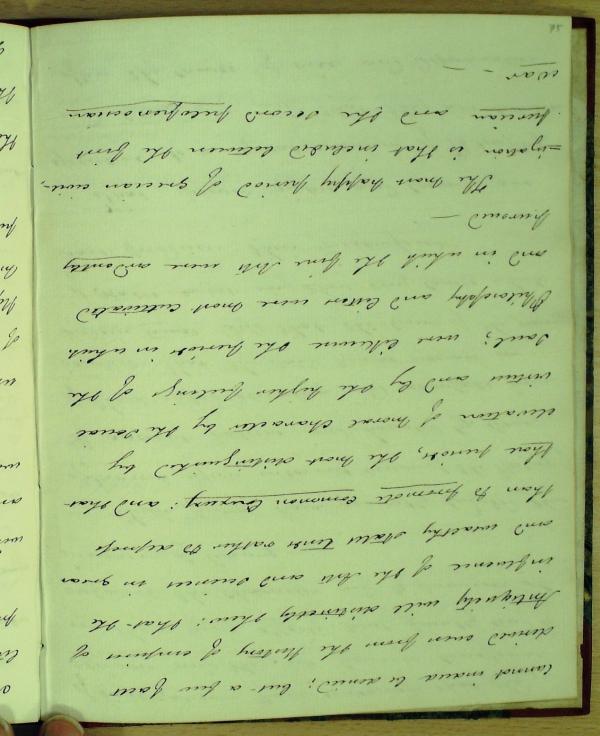 cannot indeed be denied; but a few facts
derived even from the History of empires of
Antiquity will distinctly shew: that the
influence of the Arts and sciences in great
and wealthy states tends rather to depress
than to promote common Luxury: and that
those periods, the most distinguished by
elevation of moral character by the social
virtues and by the higher feelings of the
soul; were likewise the periods in which
Philosophy and letters were most cultivated
and in which the fine Arts were ardently
pursued —
The most happy period of grecian civil-
=ization is that included between the first
persian and the second peloponnesian
war —